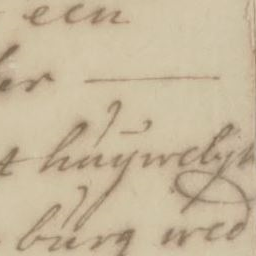 een
er
t huÿwelijk
burg wed